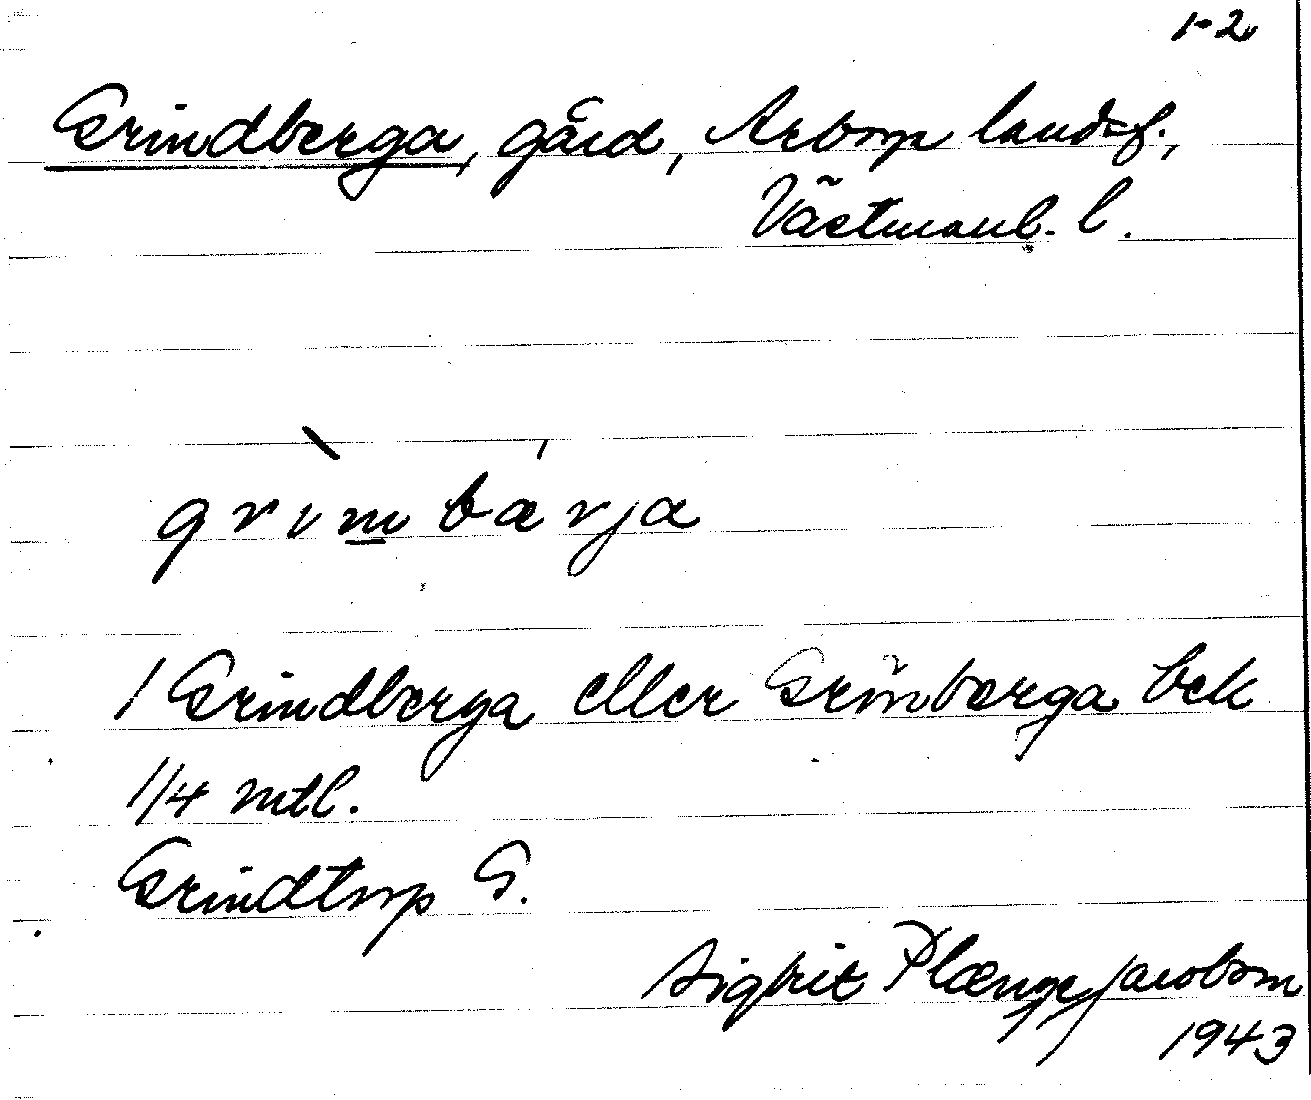 1-2
Grindberga, gård, Arboga landsf.,
Västmanl. l.
grìmbá rja
1 Grindberga eller Grönberga bek
1/4 mtl.
Grindtorp G.
Sigbrit Plænge Jacobson
1943